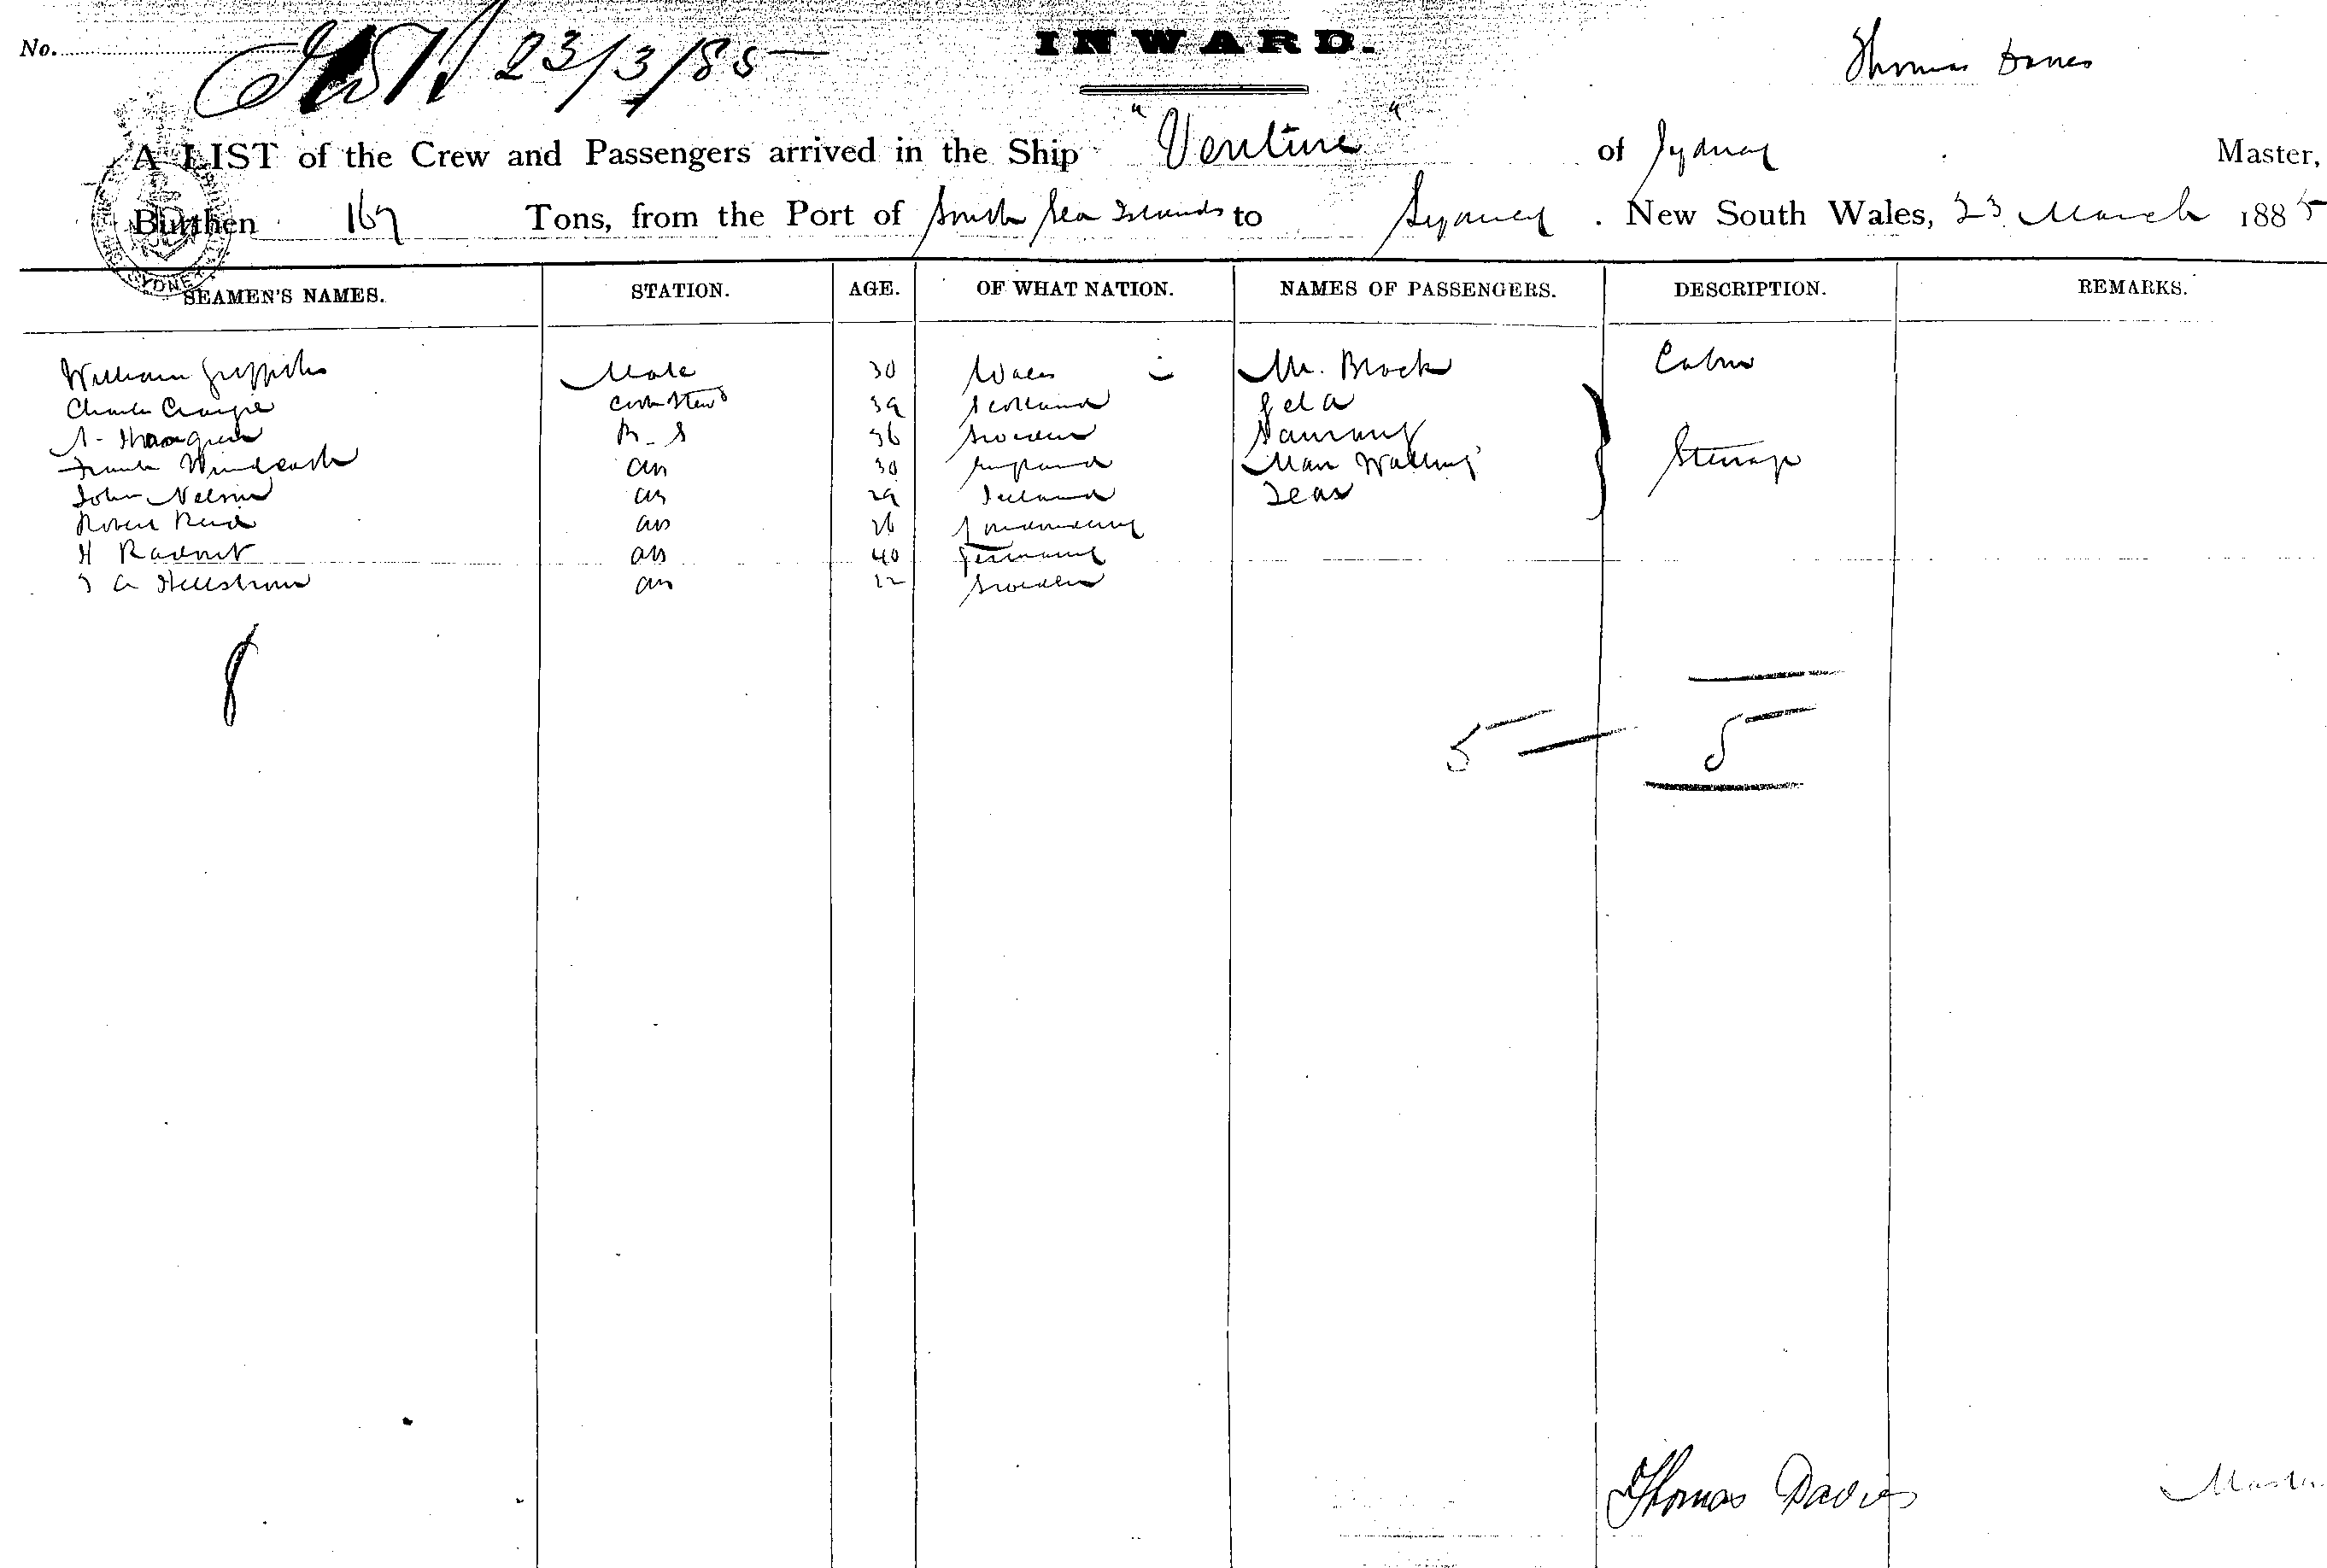 No.
23/3/85
INWARD.
Thomas Davies
A LIST of the Crew and Passengers arrived in the Ship "Venture" of Sydney Master,
Burthen 167 Tons, from the Port of South Sea Islands to Sydney. New South Wales, 23 March 1885
SEAMEN'S NAMES. STATION. AGE. OF WHAT NATION. NAMES OF PASSENGERS. DESCRIPTION. REMARKS.
William Griffiths Mate 30 Wales Mr. Brock Cabin
Charles Craigie Cook Stewd 39 Scotland
B. S 36 Sweden Sammy
Frank AB 30 England Man Steerage
John Nelson AB 29 Ireland
Robert Reid AB 26
H AB 40 Germany
Hellstrom AB Sweden
8
5 — 5
Thomas Davies Master